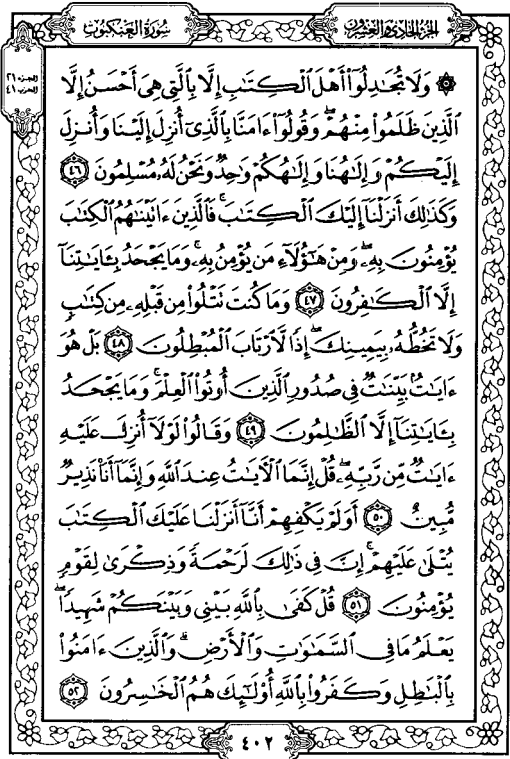 سُورَةُ العَنكبُوتِ
الجزءُ الحَادِي وَالعِشْرُونَ
الجزء ٢١
الحزب ٤١
۞ وَلَا تُجَٰدِلُوٓا۟ أَهْلَ ٱلْكِتَٰبِ إِلَّا بِٱلَّتِى هِىَ أَحْسَنُ إِلَّا
ٱلَّذِينَ ظَلَمُوا۟ مِنْهُمْ ۖ وَقُولُوٓا۟ ءَامَنَّا بِٱلَّذِىٓ أُنزِلَ إِلَيْنَا وَأُنزِلَ
إِلَيْكُمْ وَإِلَٰهُنَا وَإِلَٰهُكُمْ وَٰحِدٌ وَنَحْنُ لَهُۥ مُسْلِمُونَ ٤٦
وَكَذَٰلِكَ أَنزَلْنَآ إِلَيْكَ ٱلْكِتَٰبَ ۚ فَٱلَّذِينَ ءَاتَيْنَٰهُمُ ٱلْكِتَٰبَ
يُؤْمِنُونَ بِهِۦ ۖ وَمِنْ هَٰٓؤُلَآءِ مَن يُؤْمِنُ بِهِۦ ۚ وَمَا يَجْحَدُ بِـَٔايَٰتِنَآ
إِلَّا ٱلْكَٰفِرُونَ ٤٧ وَمَا كُنتَ تَتْلُوا۟ مِن قَبْلِهِۦ مِن كِتَٰبٍ
وَلَا تَخُطُّهُۥ بِيَمِينِكَ ۖ إِذًا لَّٱرْتَابَ ٱلْمُبْطِلُونَ ٤٨ بَلْ هُوَ
ءَايَٰتٌۢ بَيِّنَٰتٌ فِى صُدُورِ ٱلَّذِينَ أُوتُوا۟ ٱلْعِلْمَ ۚ وَمَا يَجْحَدُ
بِـَٔايَٰتِنَآ إِلَّا ٱلظَّٰلِمُونَ ٤٩ وَقَالُوا۟ لَوْلَآ أُنزِلَ عَلَيْهِ
ءَايَٰتٌ مِّن رَّبِّهِۦ ۖ قُلْ إِنَّمَا ٱلْـَٔايَٰتُ عِندَ ٱللَّهِ وَإِنَّمَآ أَنَا۠ نَذِيرٌ
مُّبِينٌ ٥٠ أَوَلَمْ يَكْفِهِمْ أَنَّآ أَنزَلْنَا عَلَيْكَ ٱلْكِتَٰبَ
يُتْلَىٰ عَلَيْهِمْ ۚ إِنَّ فِى ذَٰلِكَ لَرَحْمَةً وَذِكْرَىٰ لِقَوْمٍ
يُؤْمِنُونَ ٥١ قُلْ كَفَىٰ بِٱللَّهِ بَيْنِى وَبَيْنَكُمْ شَهِيدًا ۖ
يَعْلَمُ مَا فِى ٱلسَّمَٰوَٰتِ وَٱلْأَرْضِ ۗ وَٱلَّذِينَ ءَامَنُوا۟
بِٱلْبَٰطِلِ وَكَفَرُوا۟ بِٱللَّهِ أُو۟لَٰٓئِكَ هُمُ ٱلْخَٰسِرُونَ ٥٢
٤٠٢